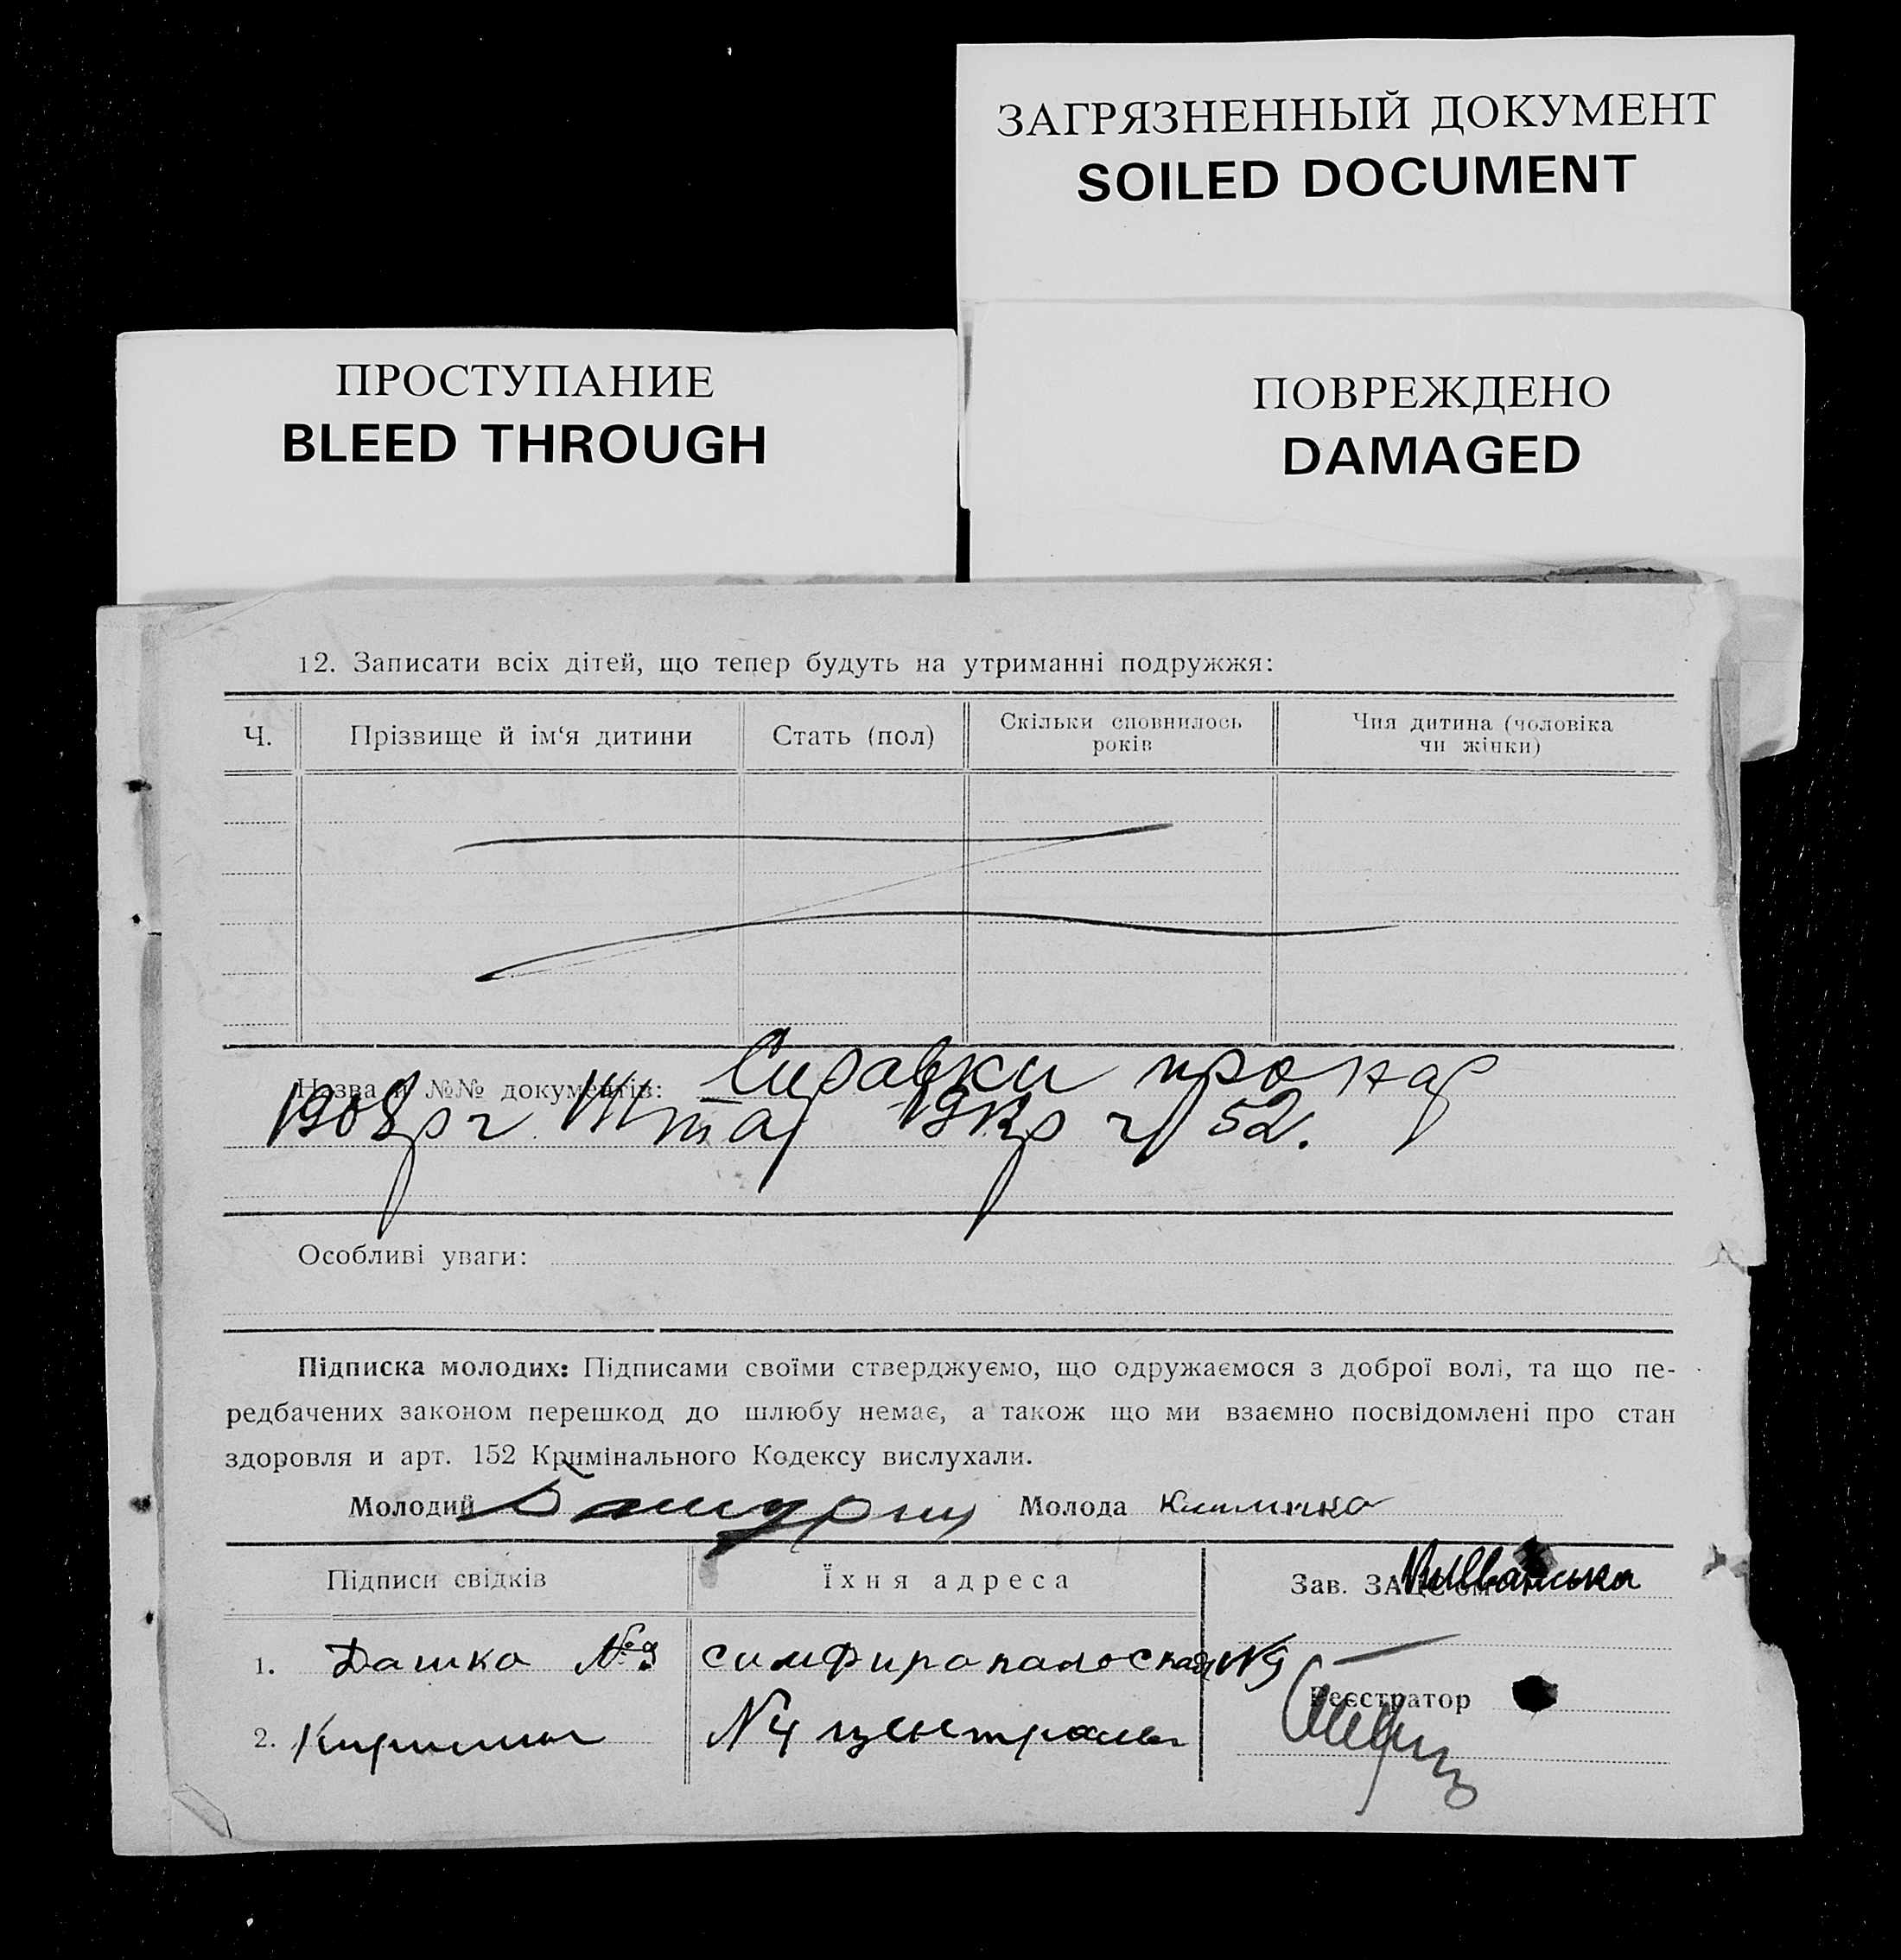 ЗАГРЯЗНЕННЫЙ ДОКУМЕНТ
SOILED DOCUMENT
ПРОСТУПАНИЕ
BLEED THROUGH
ПОВРЕЖДЕНО
DAMAGED
12. Записати всіх дітей, що тепер будуть на утриманні подружжя:
Ч. Прізвище й ім‘я дитини Стать (пол) Скільки сповнилось років Чия дитина (чоловіка чи жінки)
Назва й №№ документів: Справки про нар
1908 р г 52.
Особливі уваги:
Підписка молодих: Підписами своїми стверджуємо, що одружаємося з доброї волі, та що пе-
редбачених законом перешкод до шлюбу немає, а також що ми взаємно посвідомлені про стан
здоровля и арт. 152 Кримінального Кодексу вислухали.
Молодий Молода
Підписи свідків Їхня адреса Зав. ЗАЦС‘ом
1. Дашко №9
Реєстратор
2. №4